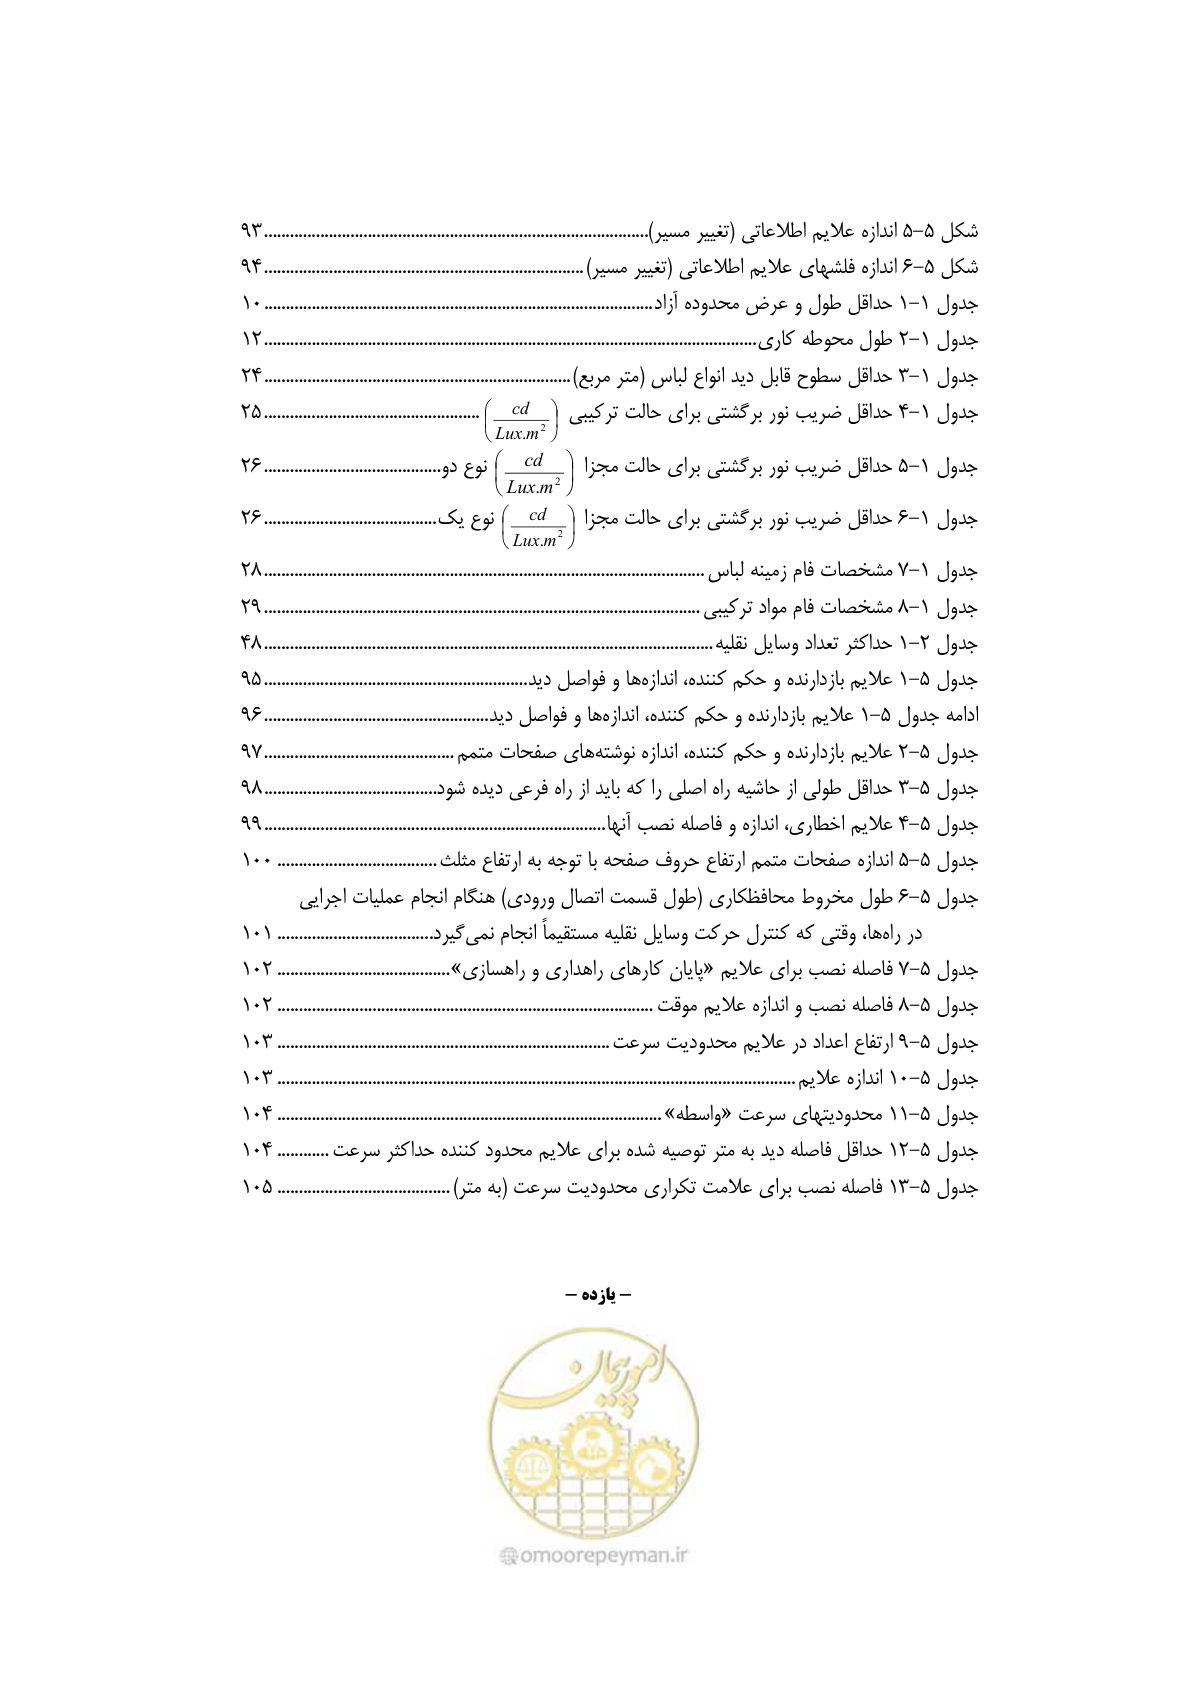 شکل ۵-۵ اندازه علایم اطلاعاتی (تغییر مسیر)................................................۹۳
شکل ۵-۶ اندازه فلشهای علایم اطلاعاتی (تغییر مسیر)................................................۹۴
جدول ۱-۱ حداقل طول و عرض محدوده آزاد................................................۱۰
جدول ۱-۲ طول محوطه کاری................................................۱۲
جدول ۱-۳ حداقل سطوح قابل دید انواع لباس (متر مربع)................................................۲۴
جدول ۱-۴ حداقل ضریب نور برگشتی برای حالت ترکیبی (cd / Lux.m²)................................................۲۵
جدول ۱-۵ حداقل ضریب نور برگشتی برای حالت مجزا (cd / Lux.m²) نوع دو................................................۲۶
جدول ۱-۶ حداقل ضریب نور برگشتی برای حالت مجزا (cd / Lux.m²) نوع یک................................................۲۶
جدول ۱-۷ مشخصات فام زمینه لباس................................................۲۸
جدول ۱-۸ مشخصات فام مواد ترکیبی................................................۲۹
جدول ۲-۱ حداکثر تعداد وسایل نقلیه................................................۴۸
جدول ۵-۱ علایم بازدارنده و حکم کننده، اندازه‌ها و فواصل دید................................................۹۵
ادامه جدول ۵-۱ علایم بازدارنده و حکم کننده، اندازه‌ها و فواصل دید................................................۹۶
جدول ۵-۲ علایم بازدارنده و حکم کننده، اندازه نوشته‌های صفحات متمم................................................۹۷
جدول ۵-۳ حداقل طولی از حاشیه راه اصلی را که باید از راه فرعی دیده شود................................................۹۸
جدول ۵-۴ علایم اخطاری، اندازه و فاصله نصب آنها................................................۹۹
جدول ۵-۵ اندازه صفحات متمم ارتفاع حروف صفحه با توجه به ارتفاع مثلث................................................۱۰۰
جدول ۵-۶ طول مخروط محافظکاری (طول قسمت اتصال ورودی) هنگام انجام عملیات اجرایی
در راه‌ها، وقتی که کنترل حرکت وسایل نقلیه مستقیماً انجام نمی‌گیرد................................................۱۰۱
جدول ۵-۷ فاصله نصب برای علایم «پایان کارهای راهداری و راهسازی»................................................۱۰۲
جدول ۵-۸ فاصله نصب و اندازه علایم موقت................................................۱۰۲
جدول ۵-۹ ارتفاع اعداد در علایم محدودیت سرعت................................................۱۰۳
جدول ۵-۱۰ اندازه علایم................................................۱۰۳
جدول ۵-۱۱ محدودیتهای سرعت «واسطه»................................................۱۰۴
جدول ۵-۱۲ حداقل فاصله دید به متر توصیه شده برای علایم محدود کننده حداکثر سرعت............۱۰۴
جدول ۵-۱۳ فاصله نصب برای علامت تکراری محدودیت سرعت (به متر)................................................۱۰۵
- یازده -
امور پیمان
@omoorepeyman.ir